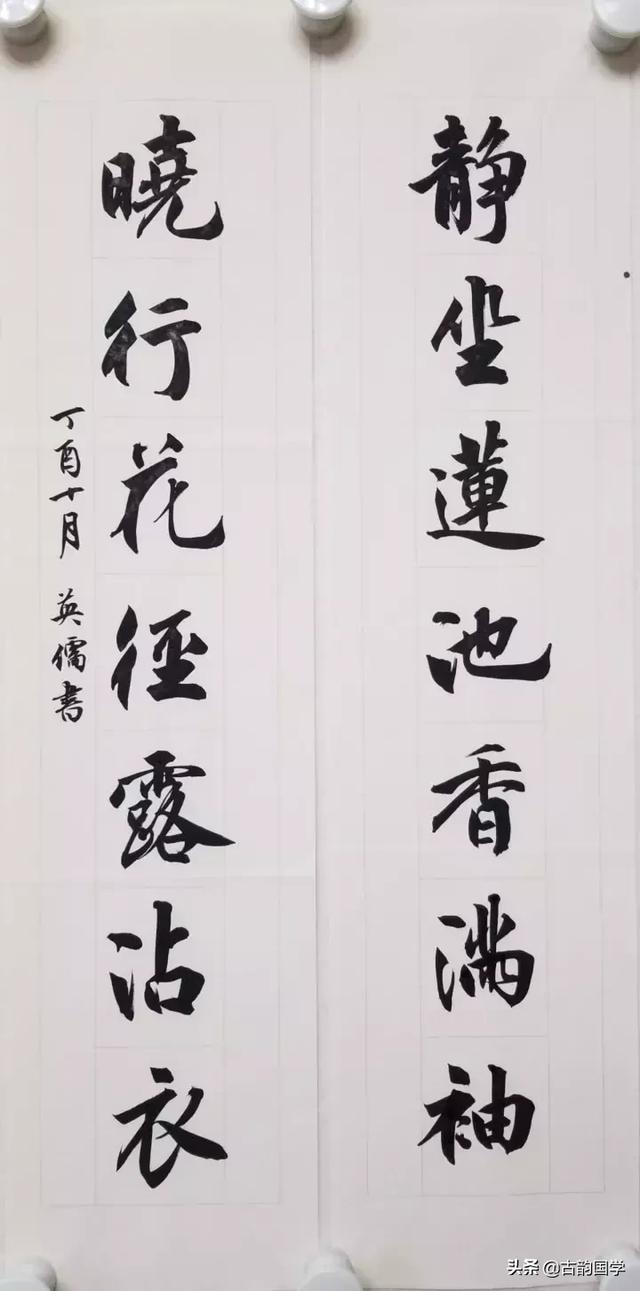 靜坐蓮池香满袖
曉行花徑露沾衣
丁酉十月 英儒書
头条 @古韵国学